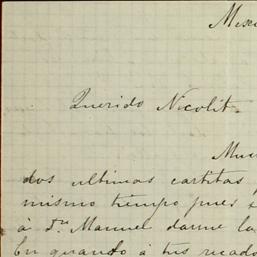 Querido Nicolit.
dos ultimas cartitas
mismo tiempo pues
á Dn. Manuel darme la
En quando á tus recado